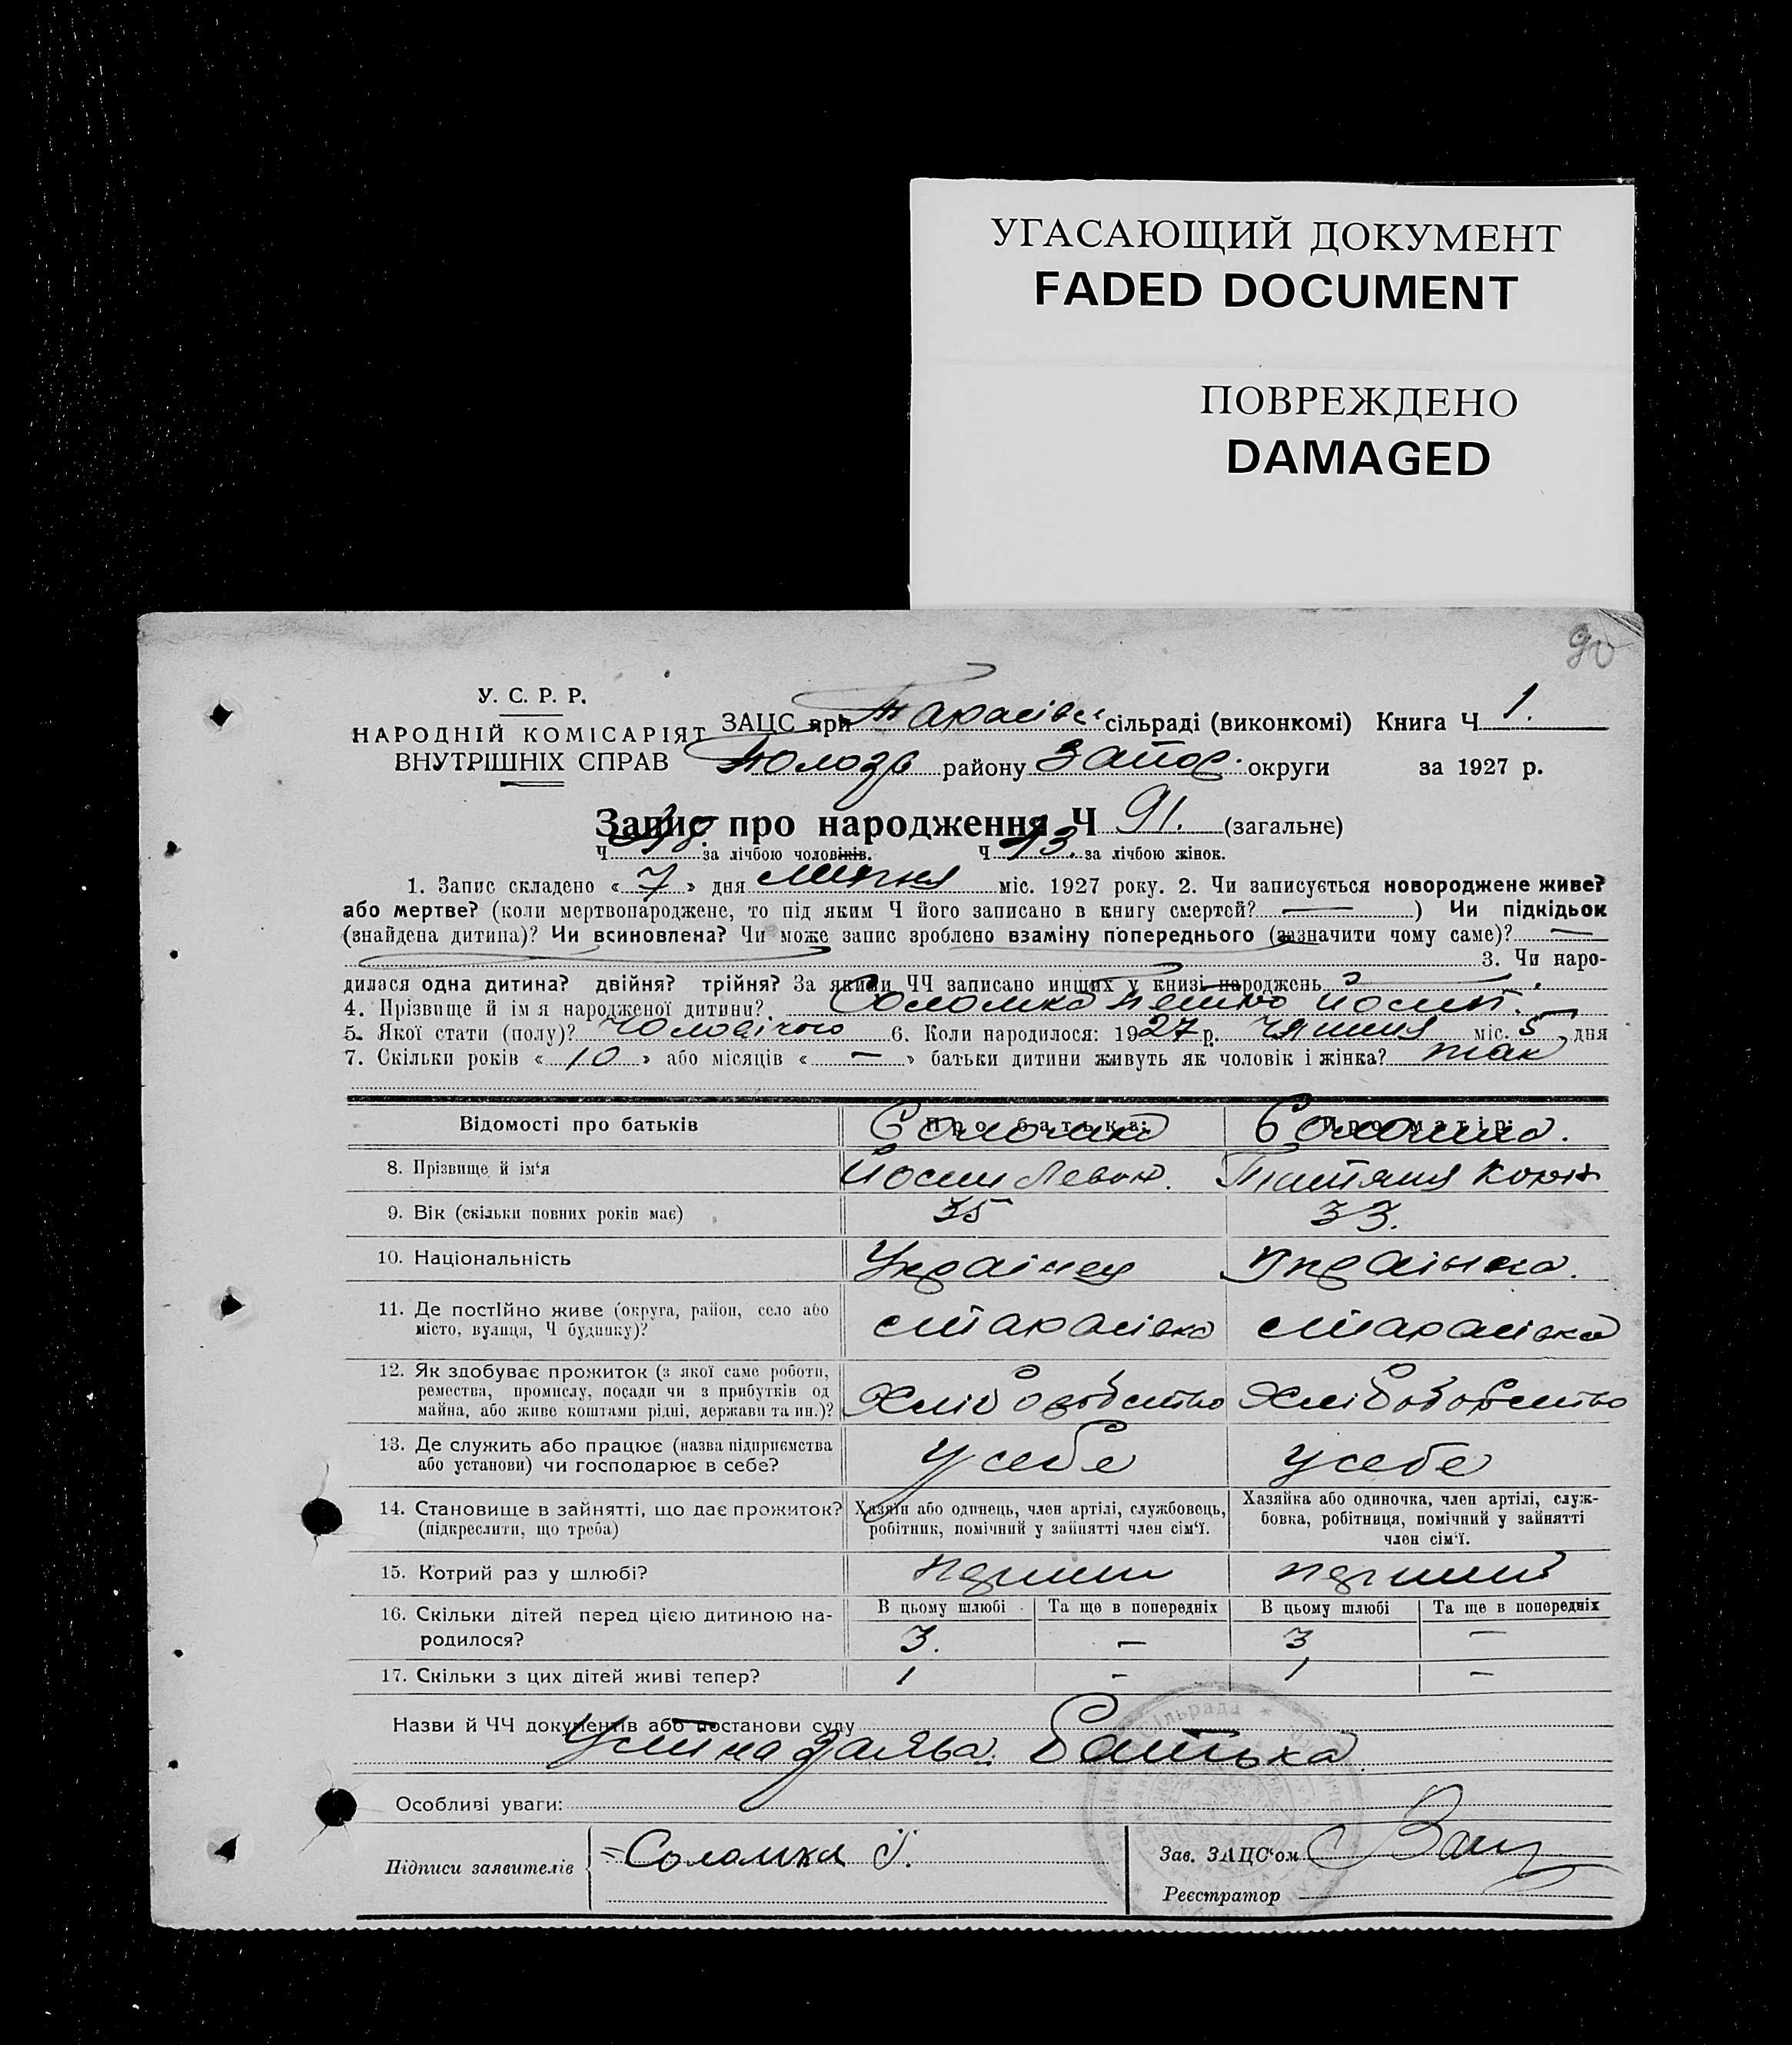 УГАСАЮЩИЙ ДОКУМЕНТ
FADED DOCUMENT
ПОВРЕЖДЕНО
DAMAGED
90
У. С. Р. Р.
НАРОДНІЙ КОМІСАРІЯТ
ВНУТРІШНІХ СПРАВ
ЗАЦС при Тарасівс сільраді (виконкомі) Книга Ч 1.
району Запор. округи за 1927 р.
Запис про народження Ч 91. (загальне)
Ч за лічбою чоловіків. Ч за лічбою жінок.
1. Запис складено « 7 » дня липня міс. 1927 року. 2. Чи записується новороджене живе?
або мертве? (коли мертвонароджене, то під яким Ч його записано в книгу смертей? — ) Чи підкідьок
(знайдена дитина)? Чи всиновлена? Чи може запис зроблено взаміну попереднього (зазначити чому саме)? —
3. Чи наро-
дилася одна дитина? двійня? трійня? За якими ЧЧ записано инших у книзі народжень
4. Прізвище й ім я народженої дитини? Соломка Петро Йосип.
5. Якої стати (полу)? Чоловічого 6. Коли народилося: 1927 р. міс. 5 дня
7. Скільки років « 10 » або місяців « — » батьки дитини живуть як чоловік і жінка? так
Відомості про батьків Про батька: Про матір:
Соломка Соломка.
8. Прізвище й ім‘я Йосип Левон. Титяня
9. Вік (скільки повних років має) 35 33.
10. Національність Українец Українка.
11. Де постійно живе (округа, район, село або
місто, вулиця, Ч будинку)? с Тарасівка с Тарасівка
12. Як здобуває прожиток (з якої саме роботи,
ремества, промислу, посади чи з прибутків од
майна, або живе коштами рідні, держави та ин.)? Хліборобство Хліборобство
13. Де служить або працює (назва підприємства
або установи) чи господарює в себе? у себе у себе
14. Становище в зайнятті, що дає прожиток?
(підкреслити, що треба)
Хазяїн або одинець, член артілі, службовець,
робітник, помічний у зайнятті член сім‘ї.
Хазяйка або одиночка, член артілі, служ-
бовка, робітниця, помічний у зайнятті
член сім‘ї.
15. Котрий раз у шлюбі? перший перший
16. Скільки дітей перед цією дитиною на-
родилося?
В цьому шлюбі Та ще в попередніх В цьому шлюбі Та ще в попередніх
3. — 3 —
17. Скільки з цих дітей живі тепер? 1 - 1 —
Назви й ЧЧ документів або постанови суду
Устна заява Батька
Особливі уваги:
Підписи заявителів Соломка Й.
Зав. ЗАЦС‘ом
Реєстратор